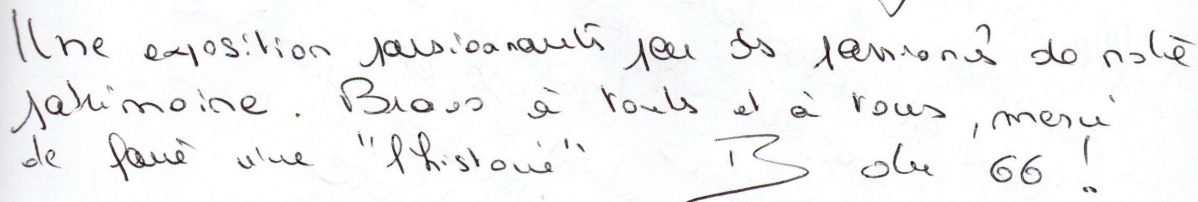 Une exposition passionnante par des passionnés de notre
patrimoine. Bravo à toutes et à tous, merci
de faire vivre "l'histoire" B du 66 !